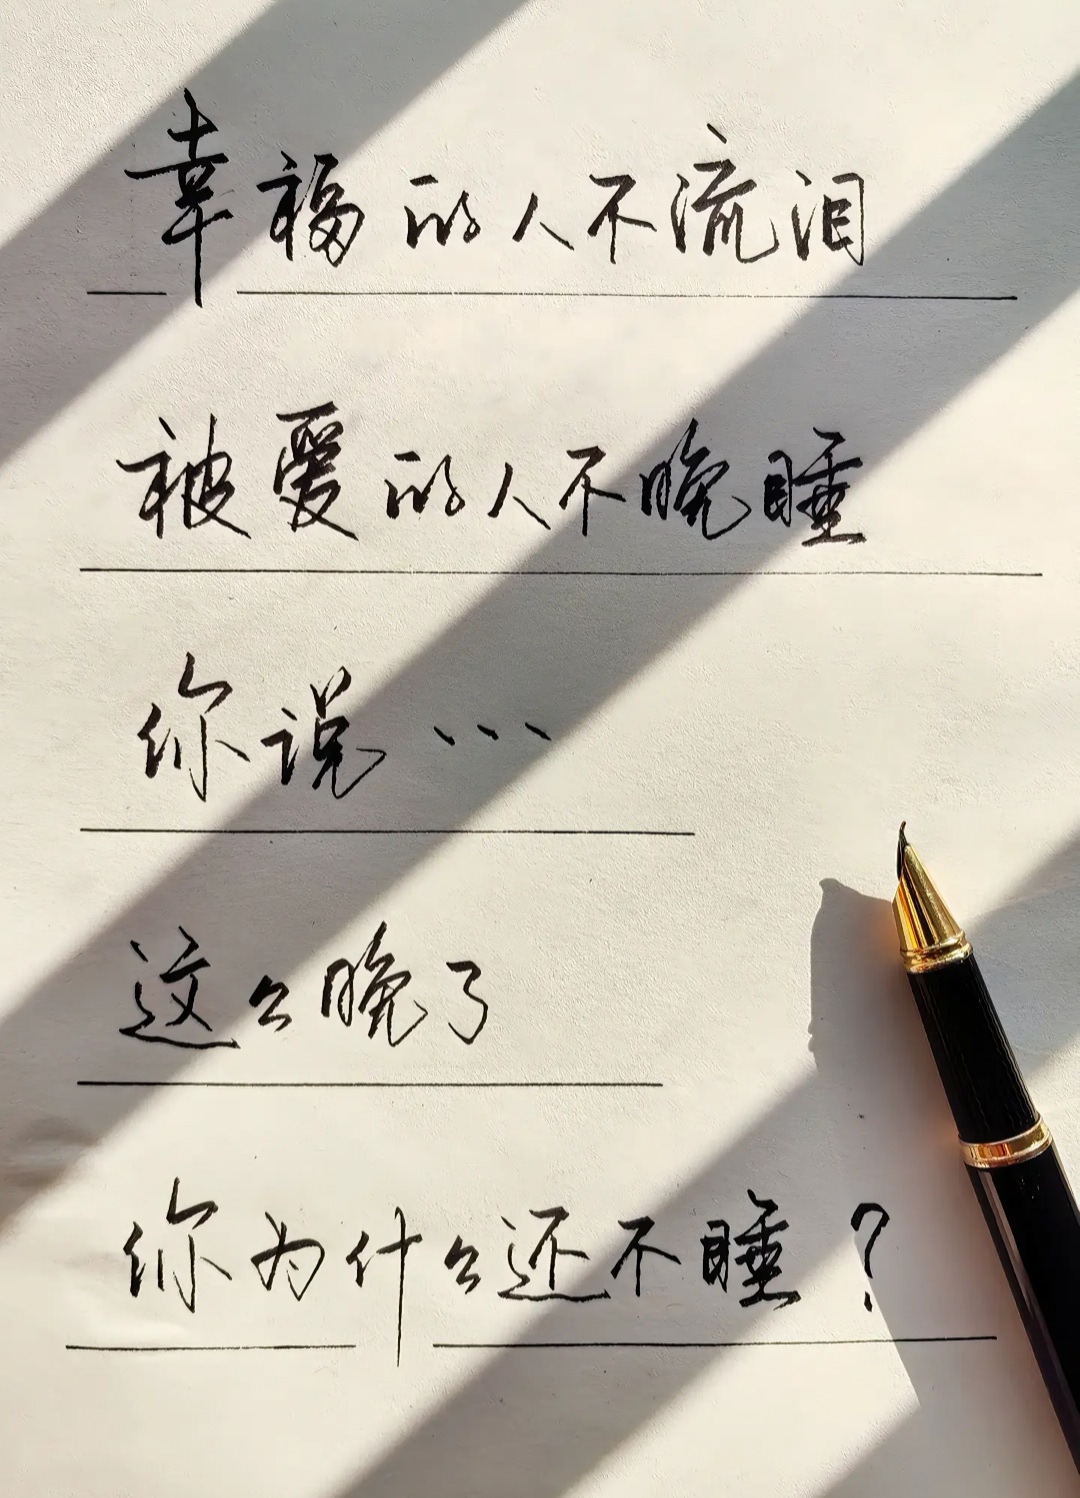 幸福的人不流泪
被爱的人不晚睡
你说…
这么晚了
你为什么还不睡?